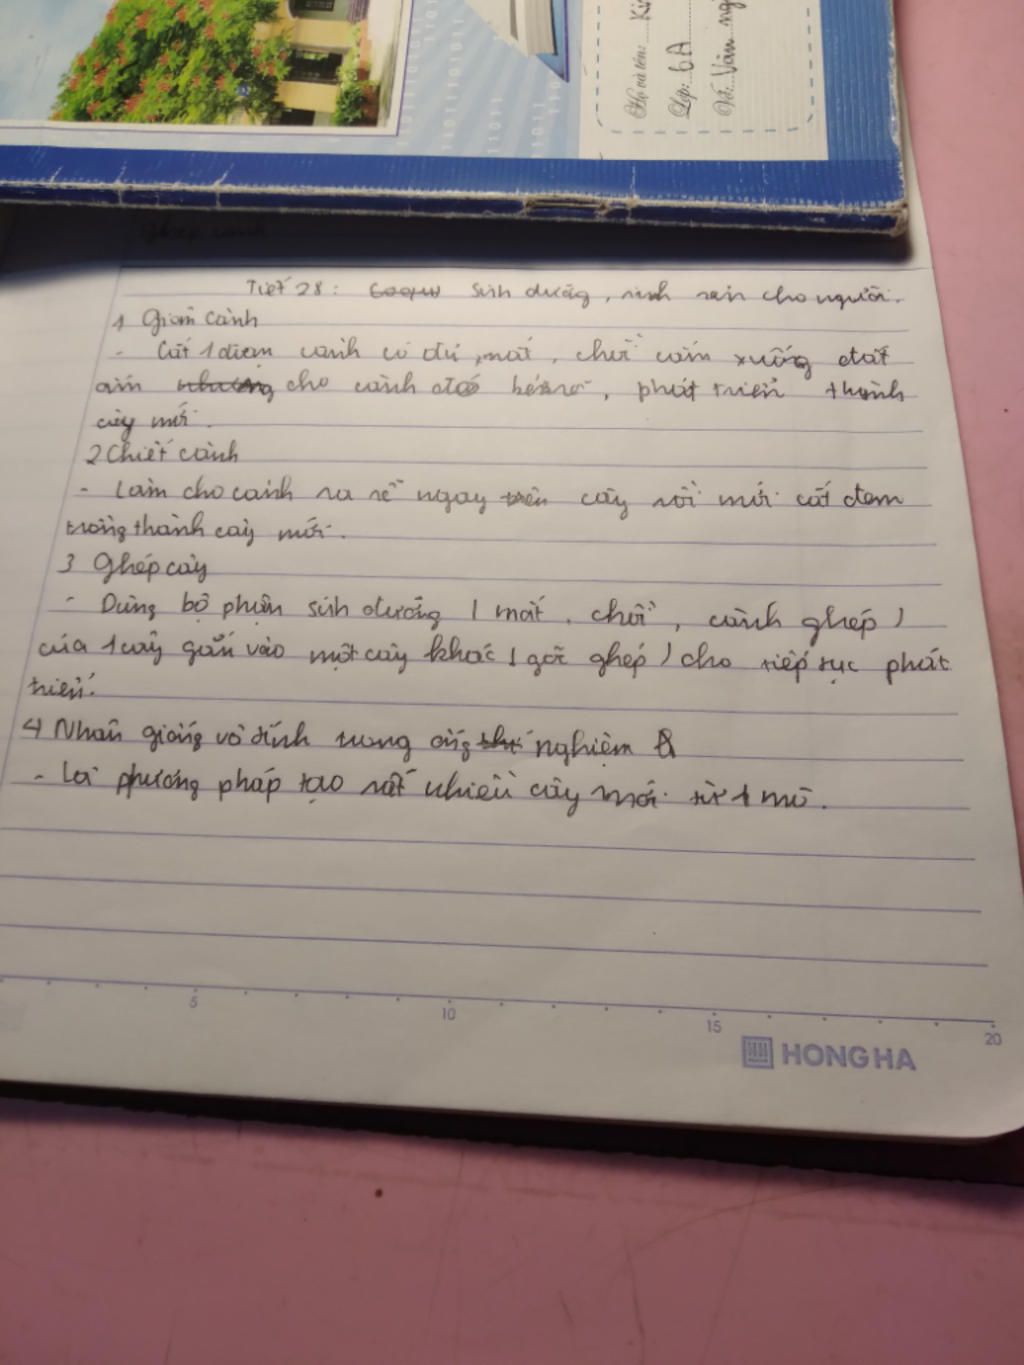 Họ và tên:.....Ki
Lớp:...6A
Vở:...Văn ng
Ghép cành
Tiết 28: Sinh dưỡng, sinh sản cho người.
1 Giâm cành
- Cắt 1 đoạn cành có đủ, mắt, chồi cắm xuống đất
ẩm cho cành đó bén rễ, phát triển thành
cây mới.
2 Chiết cành
- Làm cho cành ra rễ ngay trên cây rồi mới cắt đem
trồng thành cây mới.
3 Ghép cây
- Dùng bộ phận sinh dưỡng ( mắt, chồi, cành ghép )
của 1 cây gắn vào một cây khác ( gốc ghép ) cho tiếp tục phát
triển.
4 Nhân giống vô tính trong ống nghiệm
- Là phương pháp tạo rất nhiều cây mới từ 1 mô.
5 10 15 20
HONG HA